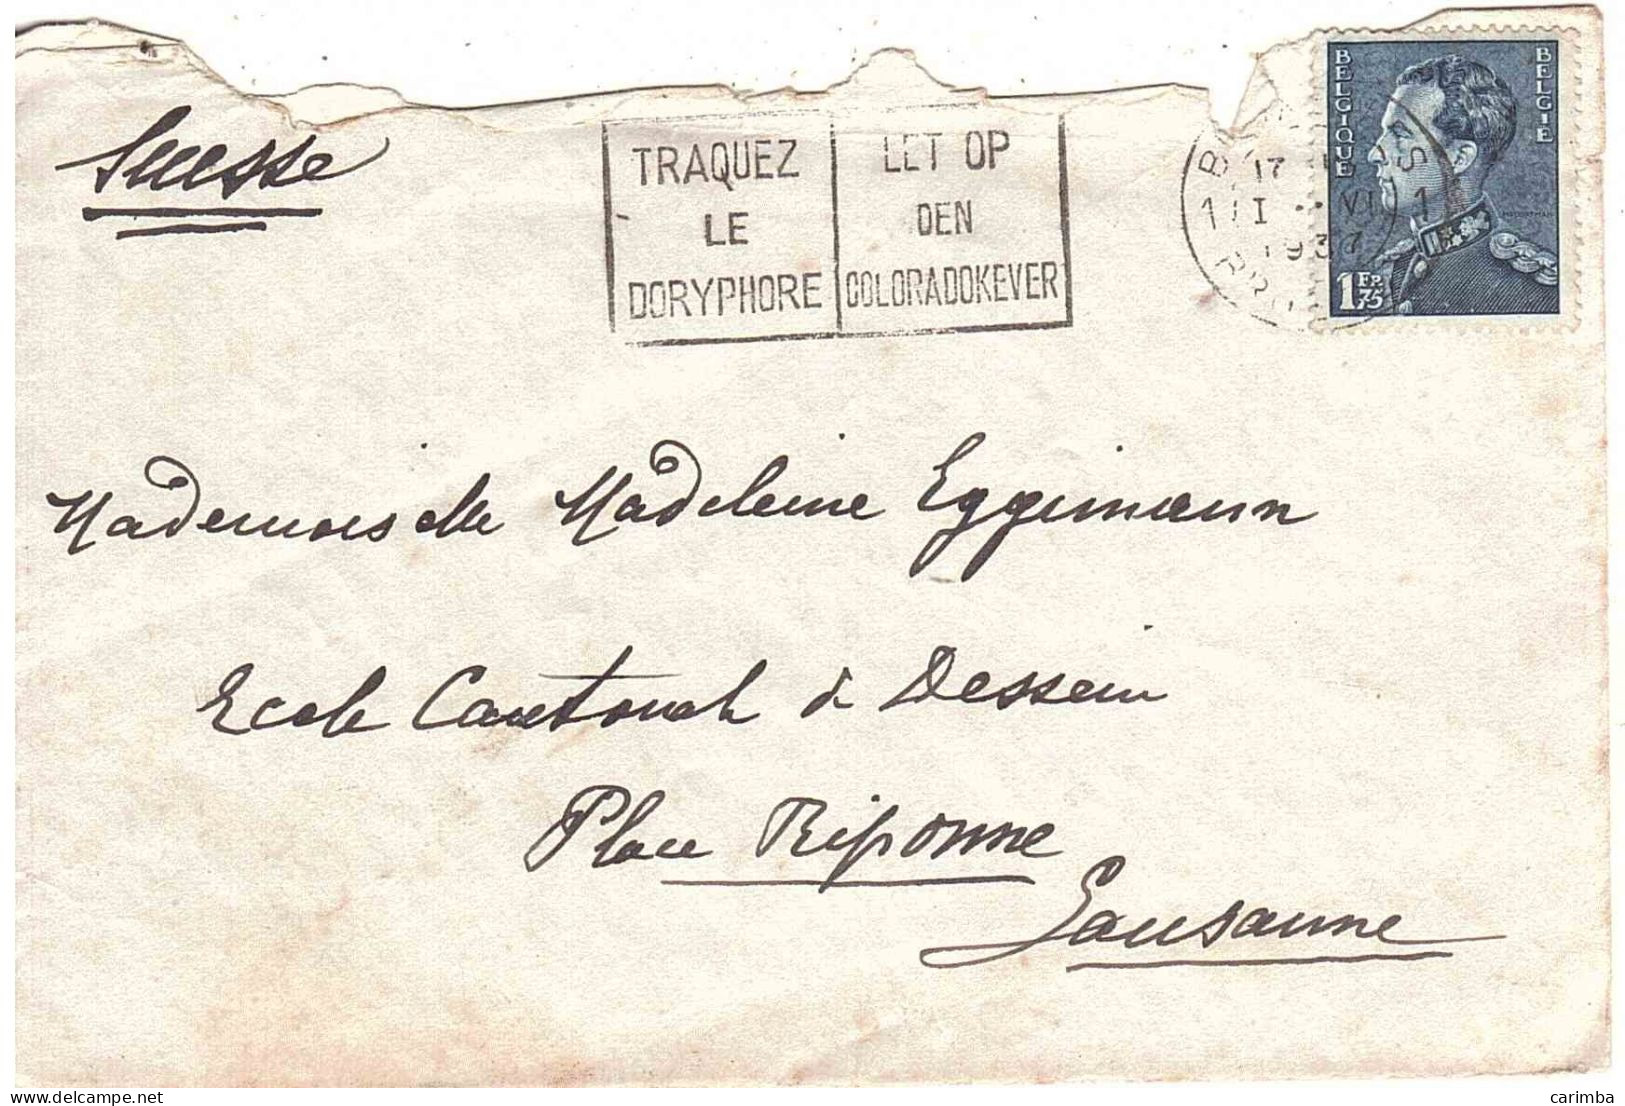 Suisse
TRAQUEZ
LE
DORYPHORE
LET OP
DEN
COLORADOKEVER
17
1 I VI 1
1937
BELGIQUE
BELGIË
1 FR 75
Mademoiselle Madeleine Eggimann
Ecole Cantonale de Dessin
Place Riponne
Lausanne
carimba